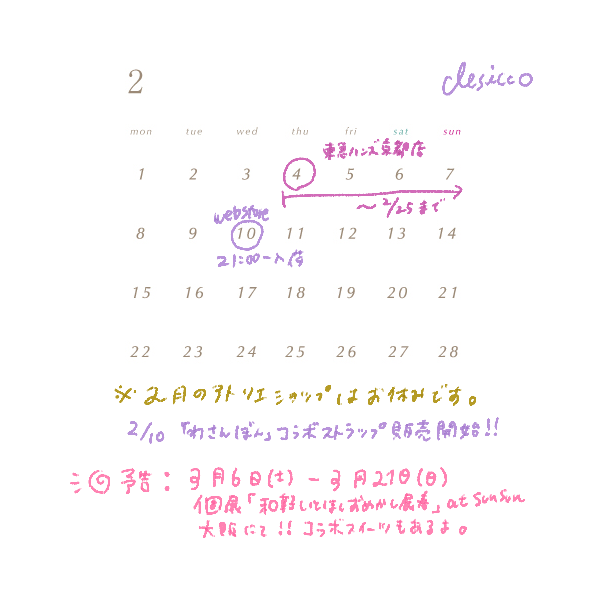 2
clesicco
mon tue wed thu fri sat sun
東急ハンズ京都店
1 2 3 4 5 6 7
〜2/25まで
webstore
8 9 10 11 12 13 14
21:00〜入荷
15 16 17 18 19 20 21
22 23 24 25 26 27 28
※2月のアトリエショップはお休みです。
2/10 「わさんぼん」コラボストラップ販売開始!!
予告: 3月6日(土)〜3月21日(日)
個展「和軽いとほしおめかし展 春」at SunSun
大阪にて!! コラボスイーツもあるよ。